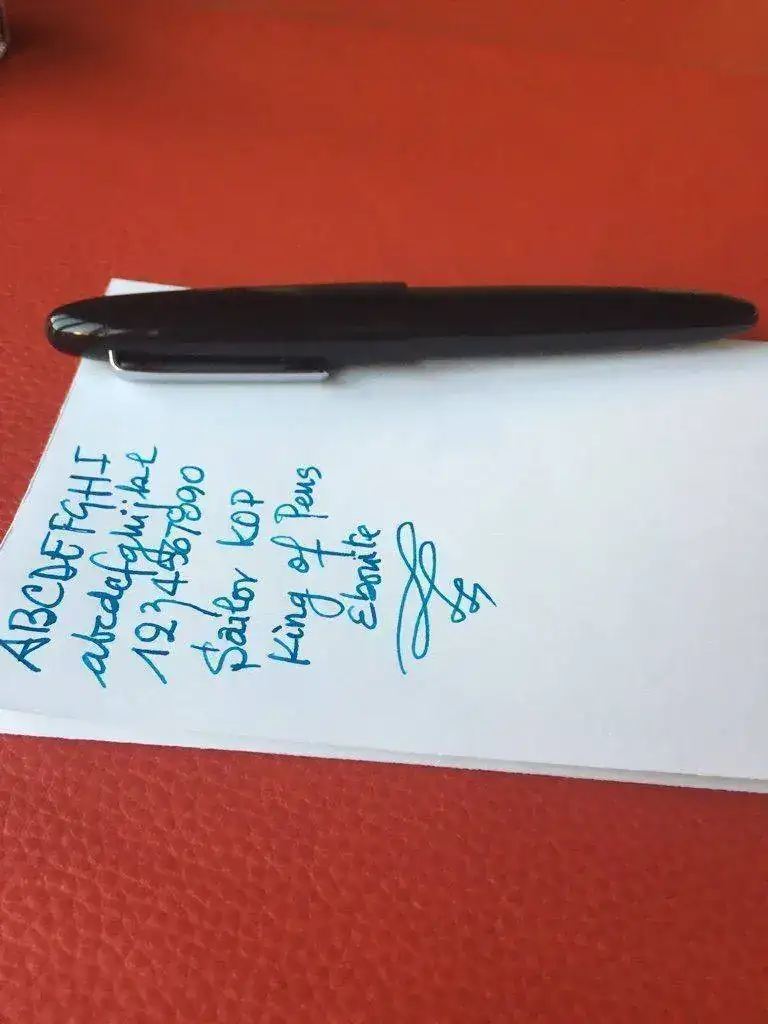 ABCDEFGHI
abcdefghijkl
1234567890
Sailor KOP
King of Pens
Ebonite